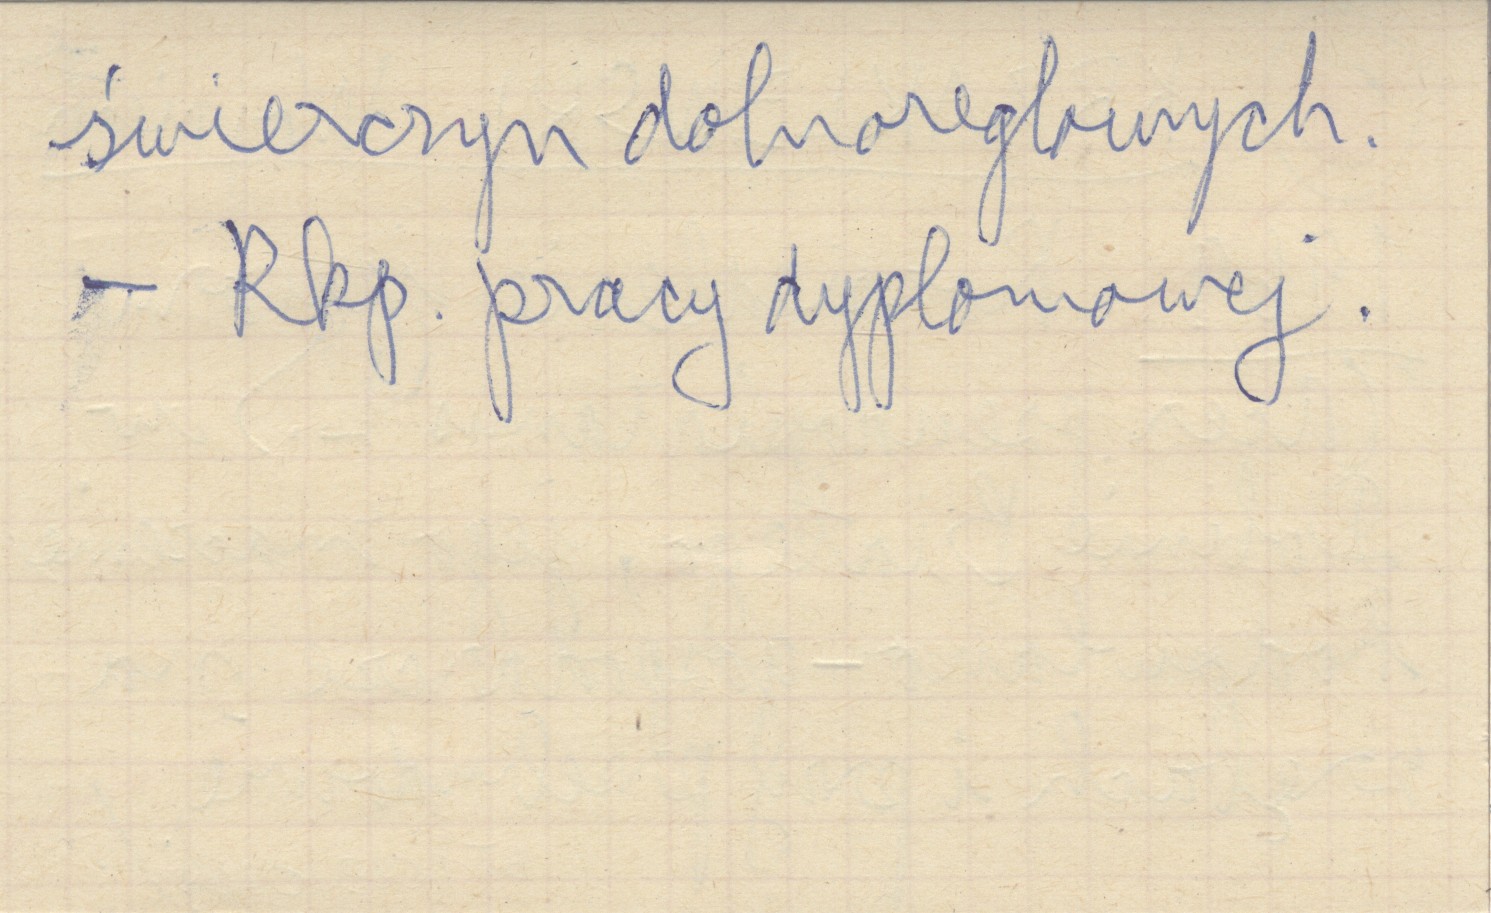 świerczyn dolnoreglowych.
- Rkp. pracy dyplomowej.